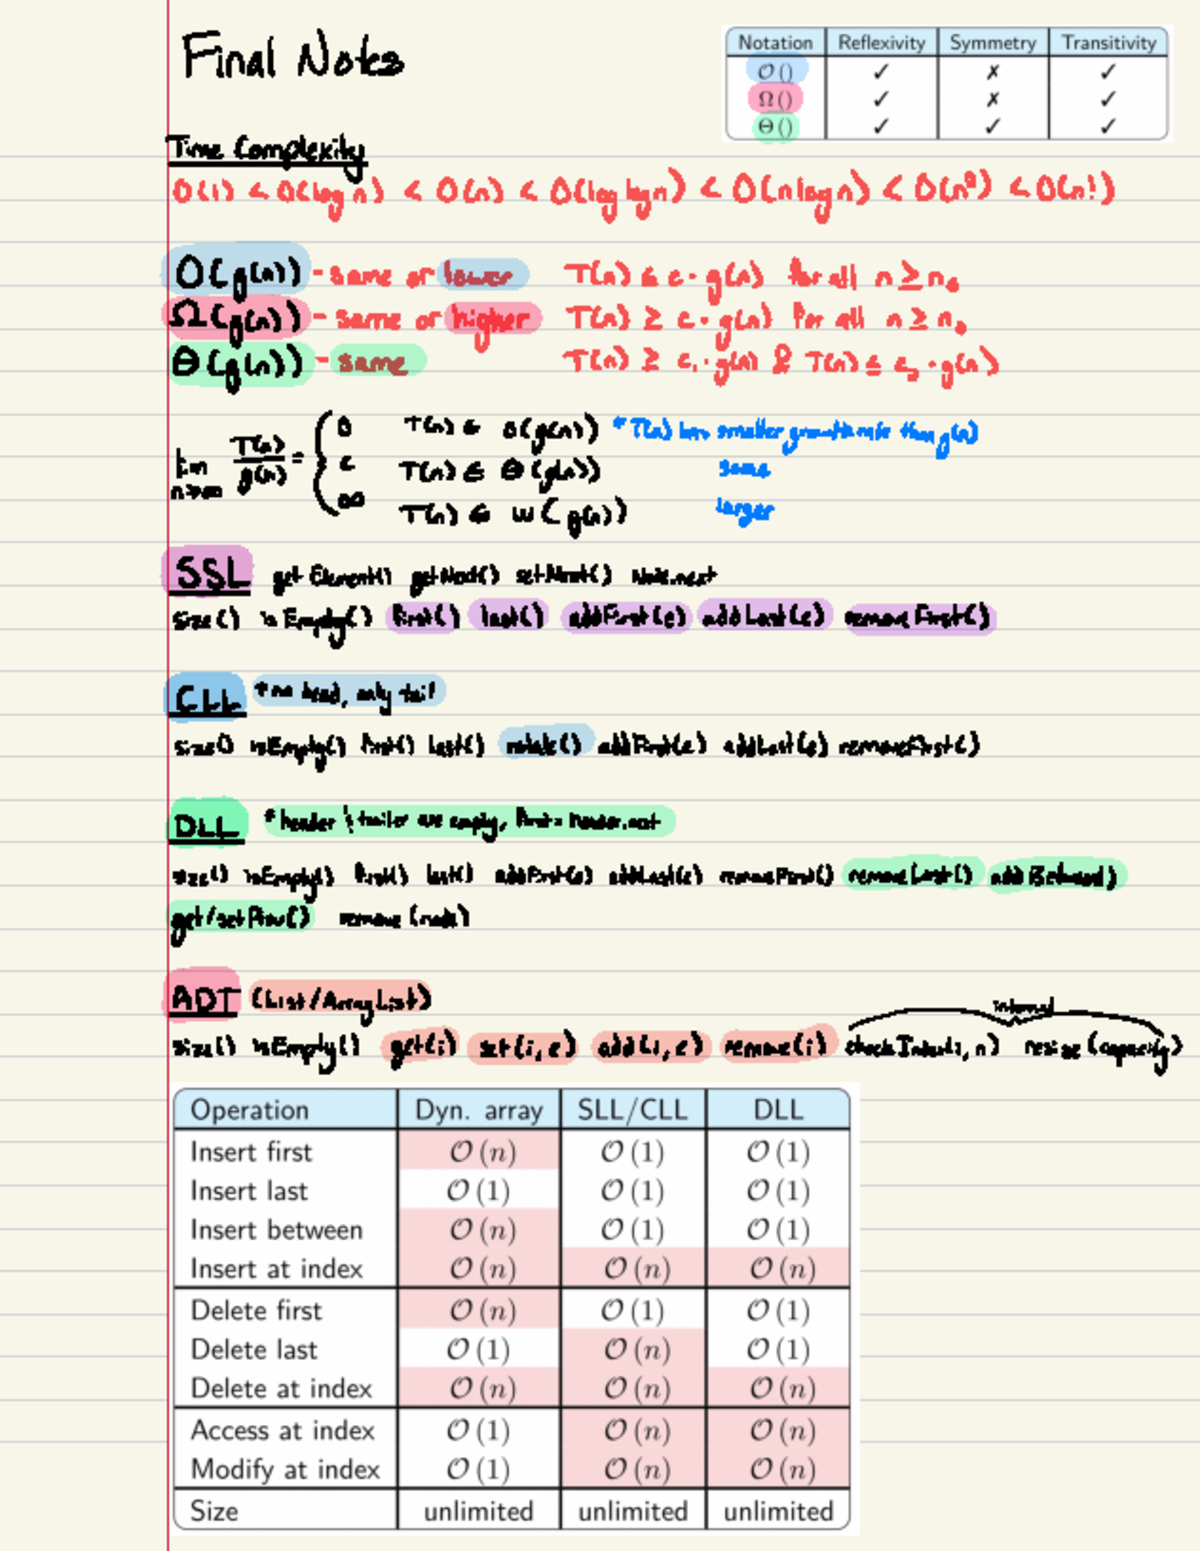 Final Notes
Notation Reflexivity Symmetry Transitivity
O() ✓ ✗ ✓
Ω() ✓ ✗ ✓
Θ() ✓ ✓ ✓
Time Complexity
O(1) < O(log n) < O(n) < O(log log n) < O(n log n) < O(n²) < O(n!)
O(g(n)) - same or lower T(n) ≤ c · g(n) for all n ≥ n₀
Ω(g(n)) - same or higher T(n) ≥ c · g(n) for all n ≥ n₀
Θ(g(n)) - same T(n) ≥ c₁ · g(n) & T(n) ≤ c₂ · g(n)
lim n→∞ T(n)/g(n) = { 0 T(n) ∈ o(g(n)) * T(n) has smaller growth rate than g(n)
c T(n) ∈ Θ(g(n)) same
∞ T(n) ∈ ω(g(n)) larger
SSL getElement() getNext() setNext() Node.next
size() isEmpty() first() last() addFirst(e) addLast(e) removeFirst()
CLL * no head, only tail
size() isEmpty() first() last() rotate() addFirst(e) addLast(e) removeFirst()
DLL * header & trailer are empty, first = header.next
size() isEmpty() first() last() addFirst(e) addLast(e) removeFirst() removeLast() addBetween()
get/setPrev() remove(node)
ADT (List/ArrayList)
internal
size() isEmpty() get(i) set(i, e) add(i, e) remove(i) checkIndex(i, n) resize(capacity)
Operation Dyn. array SLL/CLL DLL
Insert first O(n) O(1) O(1)
Insert last O(1) O(1) O(1)
Insert between O(n) O(1) O(1)
Insert at index O(n) O(n) O(n)
Delete first O(n) O(1) O(1)
Delete last O(1) O(n) O(1)
Delete at index O(n) O(n) O(n)
Access at index O(1) O(n) O(n)
Modify at index O(1) O(n) O(n)
Size unlimited unlimited unlimited